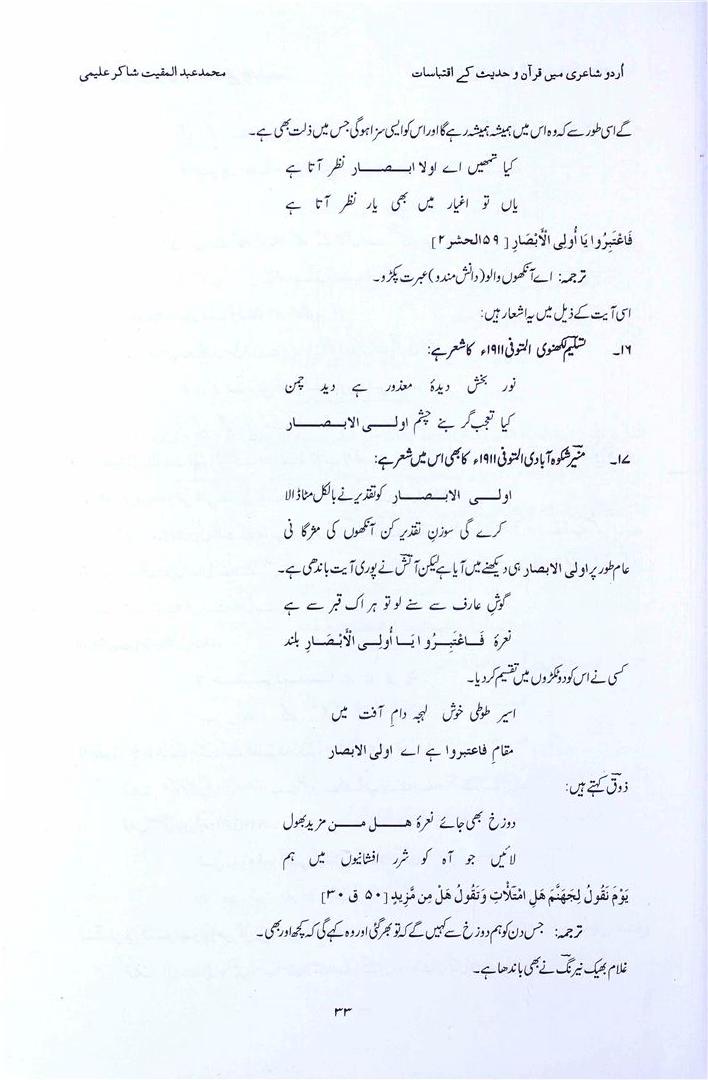 اُردو شاعری میں قرآن و حدیث کے اقتباسات
محمد عبد المقیت شاکر علیمی
گے اسی طور سے کہ وہ اس میں ہمیشہ ہمیشہ رہے گا اور اس کو ایسی سزا ہوگی جس میں ذلت بھی ہے۔
کیا تمھیں اے اولا ابصار نظر آتا ہے
یاں تو اغیار میں بھی یار نظر آتا ہے
فَاعْتَبِرُوا يَا أُولِى الْأَبْصَارِ [ ۵۹ الحشر ۲]
ترجمہ: اے آنکھوں والو (دانش مندو) عبرت پکڑو۔
اسی آیت کے ذیل میں یہ اشعار ہیں:
۱۶۔ تسلیم لکھنوی المتوفی ۱۹۱۱ء کا شعر ہے:
نور بخش دیدۂ معذور ہے دید چمن
کیا تعجب گر بنے چشم اولی الابصار
۱۷۔ منیر شکوہ آبادی المتوفی ۱۹۱۱ء کا بھی اس میں شعر ہے:
اولی الابصار کو تقدیر نے بالکل مٹا ڈالا
کرے گی سوزنِ تقدیر کن آنکھوں کی مژگانی
عام طور پر اولی الابصار ہی دیکھنے میں آیا ہے لیکن آتش نے پوری آیت باندھی ہے۔
گوشِ عارف سے سنے لو تو ہر اک قبر سے ہے
نعرۂ فَاعْتَبِرُوا يَا أُولِى الْأَبْصَارِ بلند
کسی نے اس کو دو ٹکڑوں میں تقسیم کر دیا۔
اسیر طوطی خوش لہجہ دامِ آفت میں
مقامِ فاعتبروا ہے اے اولی الابصار
ذوق کہتے ہیں:
دوزخ بھی جائے نعرۂ ھل من مزید بھول
لائیں جو آہ کو شرر افشانیوں میں ہم
يَوْمَ نَقُولُ لِجَهَنَّمَ هَلِ امْتَلْأتِ وَتَقُولُ هَلْ مِن مَّزِيدٍ [ ۵۰ ق ۳۰]
ترجمہ: جس دن کو ہم دوزخ سے کہیں گے کہ تو بھر گئی اور وہ کہے گی کہ کچھ اور بھی۔
غلام بھیک نیرنگ نے بھی باندھا ہے۔
۳۳